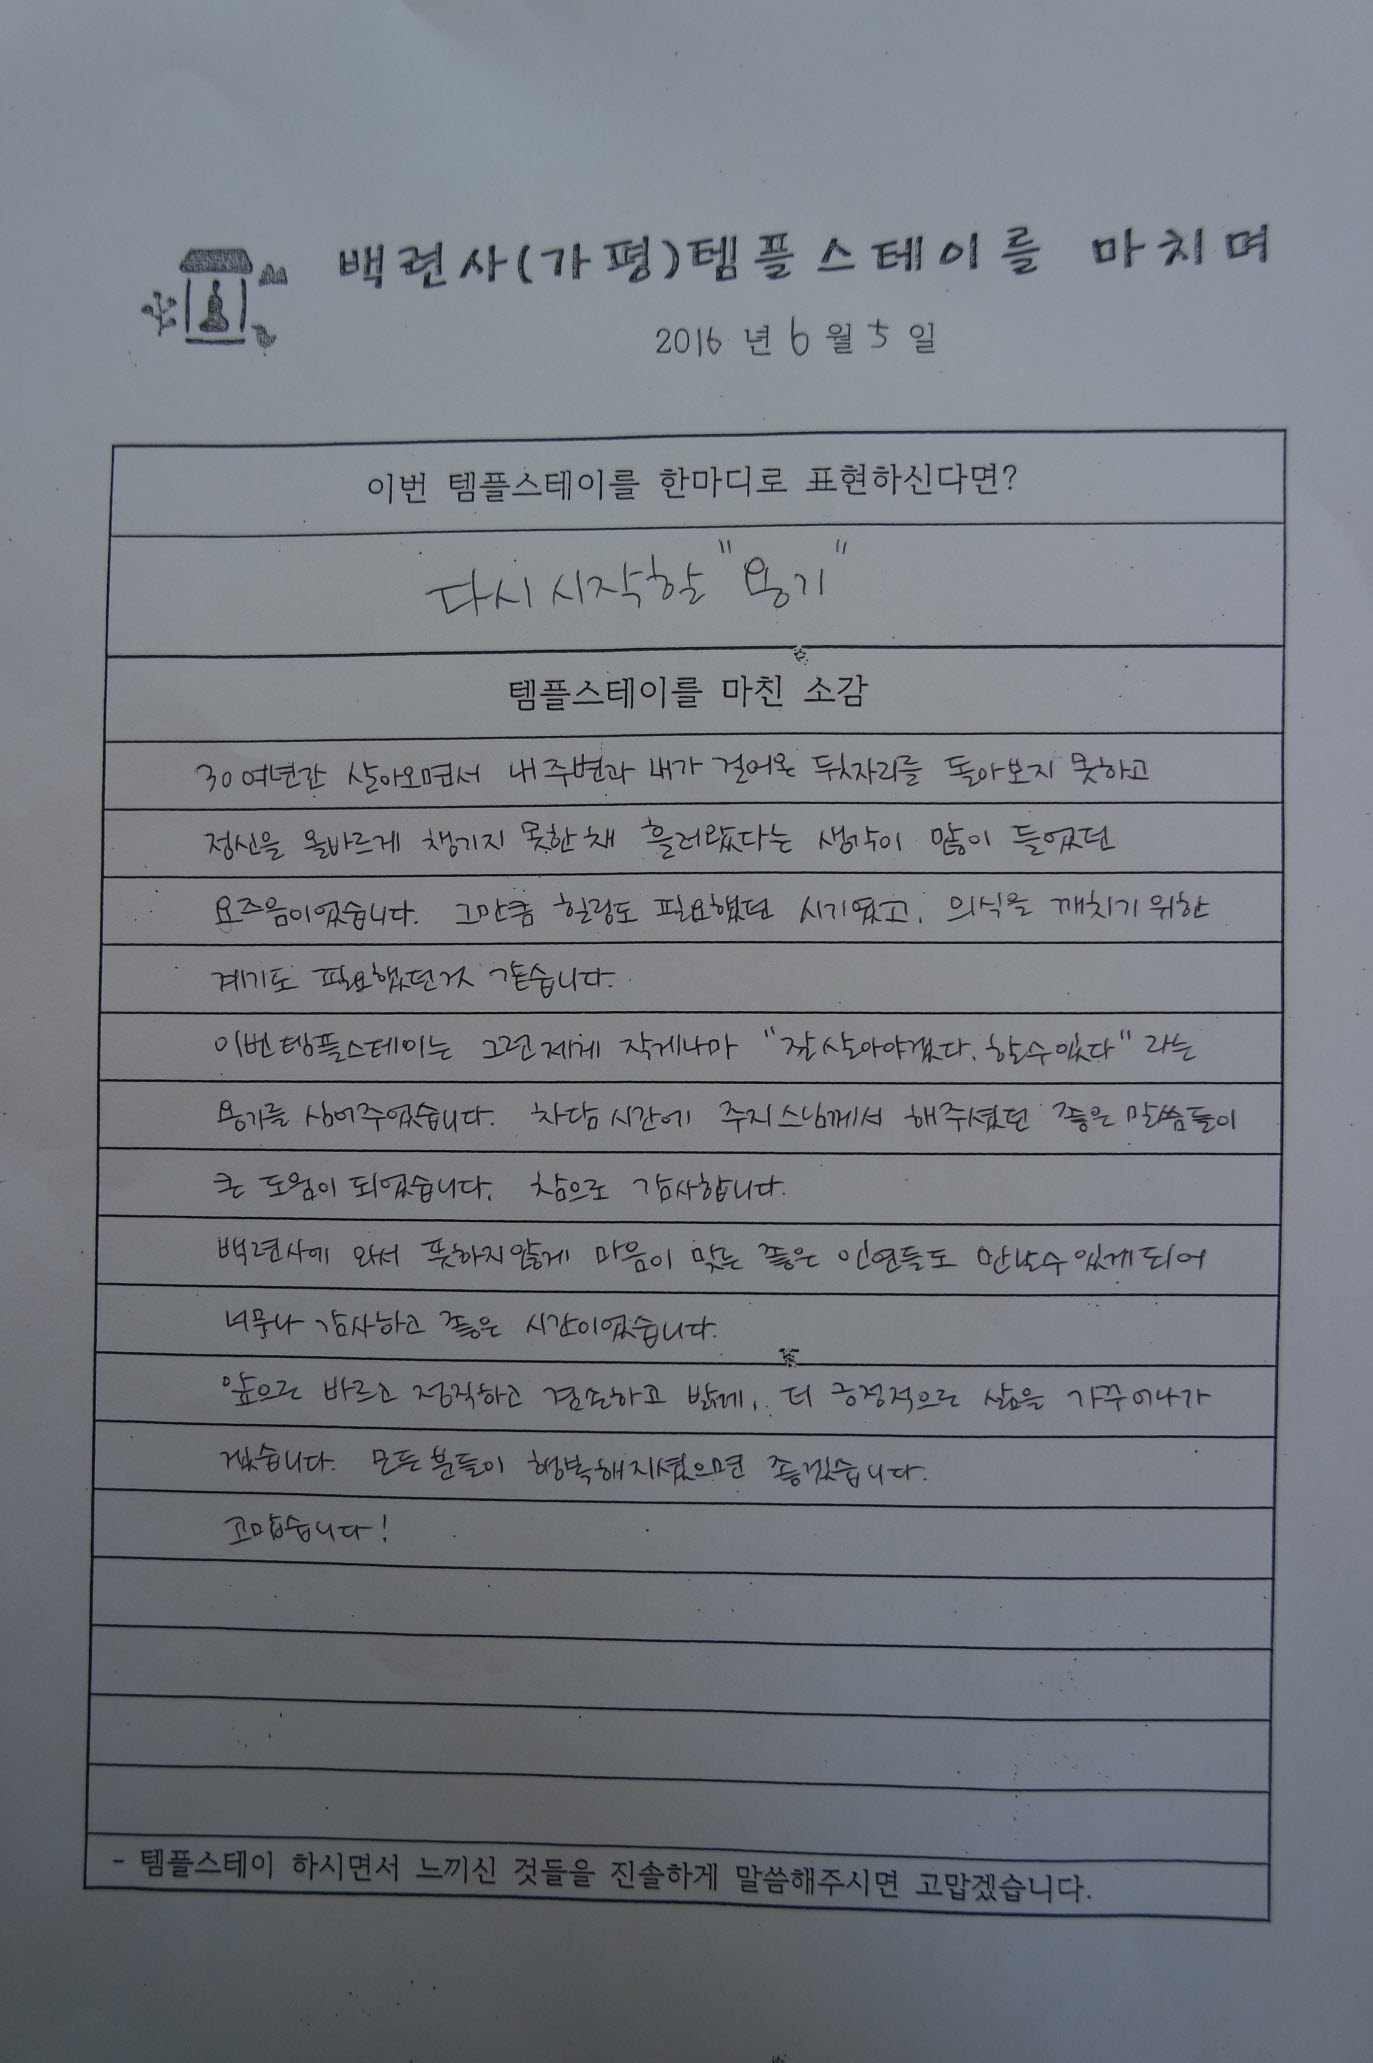 백련사(가평)템플스테이를 마치며
2016 년 6 월 5 일
이번 템플스테이를 한마디로 표현하신다면?
다시 시작할 "용기"
템플스테이를 마친 소감
30여년간 살아오면서 내 주변과 내가 걸어온 뒷자리를 돌아보지 못하고
정신을 올바르게 챙기지 못한 채 흘러왔다는 생각이 많이 들었던
요즈음이었습니다. 그만큼 힐링도 필요했던 시기였고, 의식을 깨치기 위한
계기도 필요했던것 같습니다.
이번템플스테이는 그런 제게 작게나마 "잘 살아야겠다. 할 수 있다" 라는
용기를 심어주었습니다. 차담 시간에 주지스님께서 해주셨던 좋은 말씀들이
큰 도움이 되었습니다. 참으로 감사합니다.
백련사에 와서 뜻하지않게 마음이 맞는 좋은 인연들도 만날수 있게 되어
너무나 감사하고 좋은 시간이었습니다.
앞으로 바르고 정직하고 겸손하고 밝게, 더 긍정적으로 삶을 가꾸어나가
겠습니다. 모든 분들이 행복해지셨으면 좋겠습니다.
고맙습니다!
- 템플스테이 하시면서 느끼신 것들을 진솔하게 말씀해주시면 고맙겠습니다.